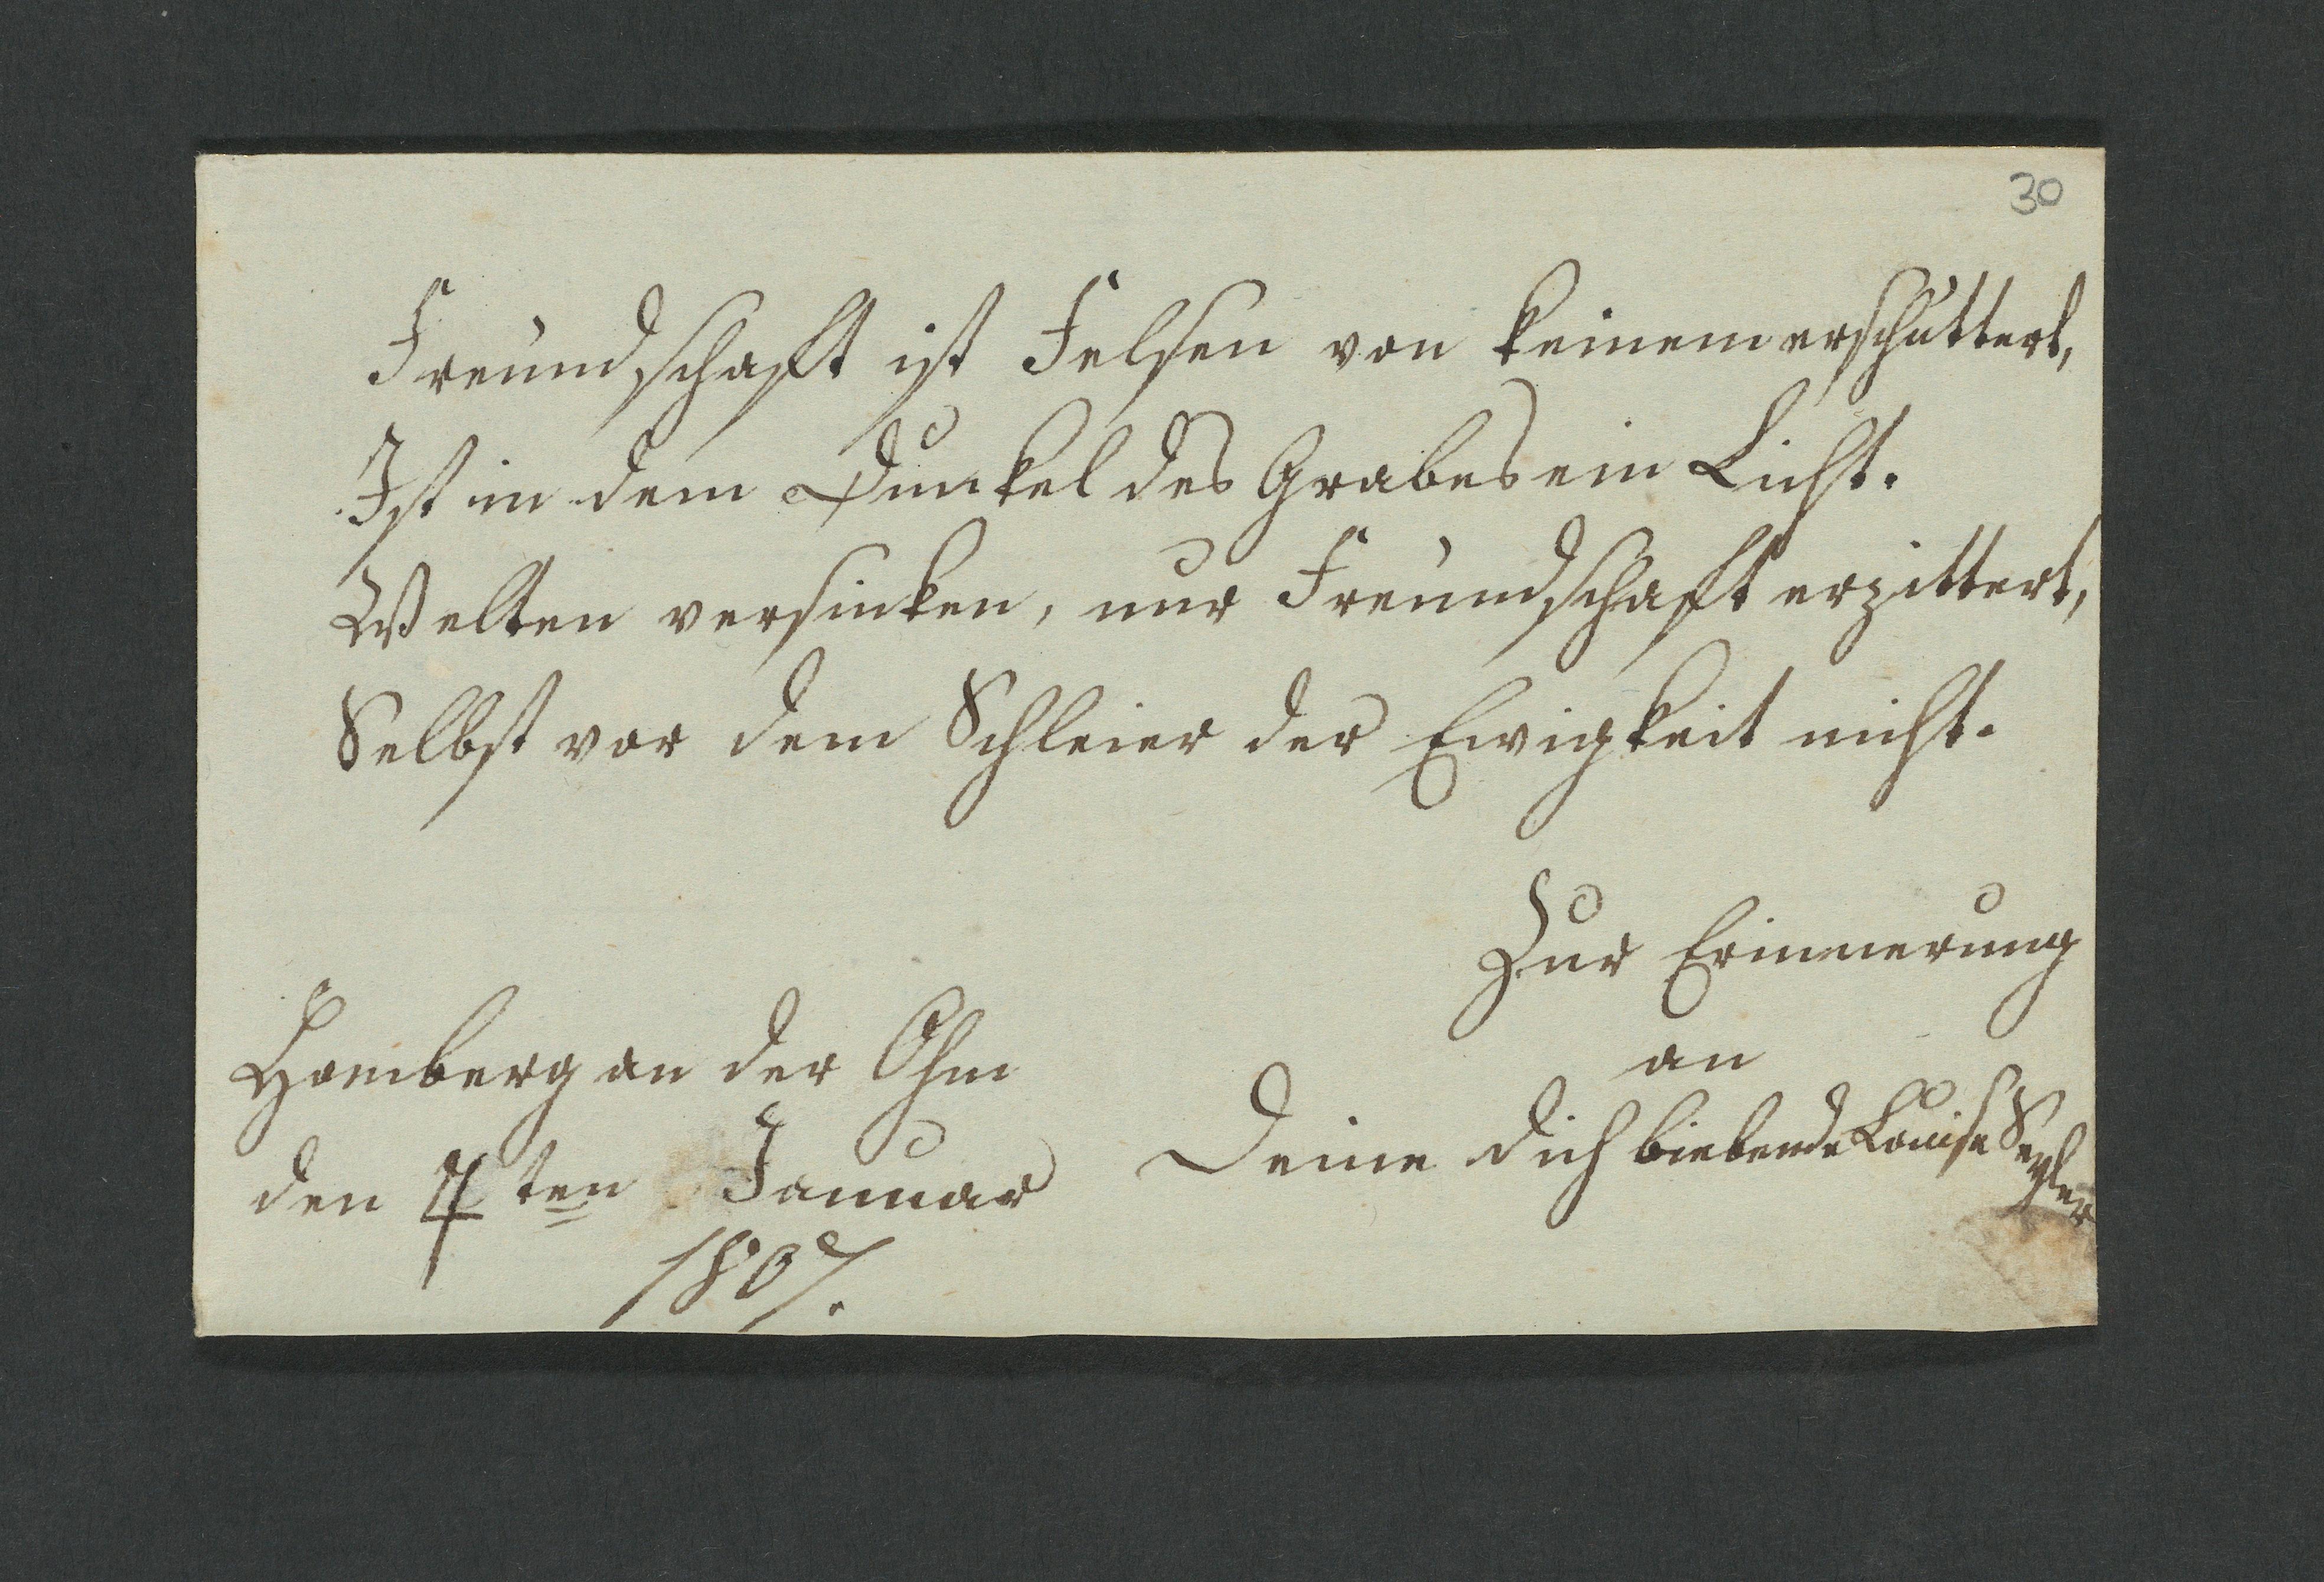 30
Freundschaft ist Felsen von keinem erschüttert,
Ist in dem Dunkel des Grabes ein Licht.
Welten versinken, nur Freundschaft erzittert,
Selbst vor dem Schleier der Ewigkeit nicht.
Zur Erinnerung
an
Deine dich liebende Louise Seyler
Homberg an der Ohm
den 4ten Januar
1807.